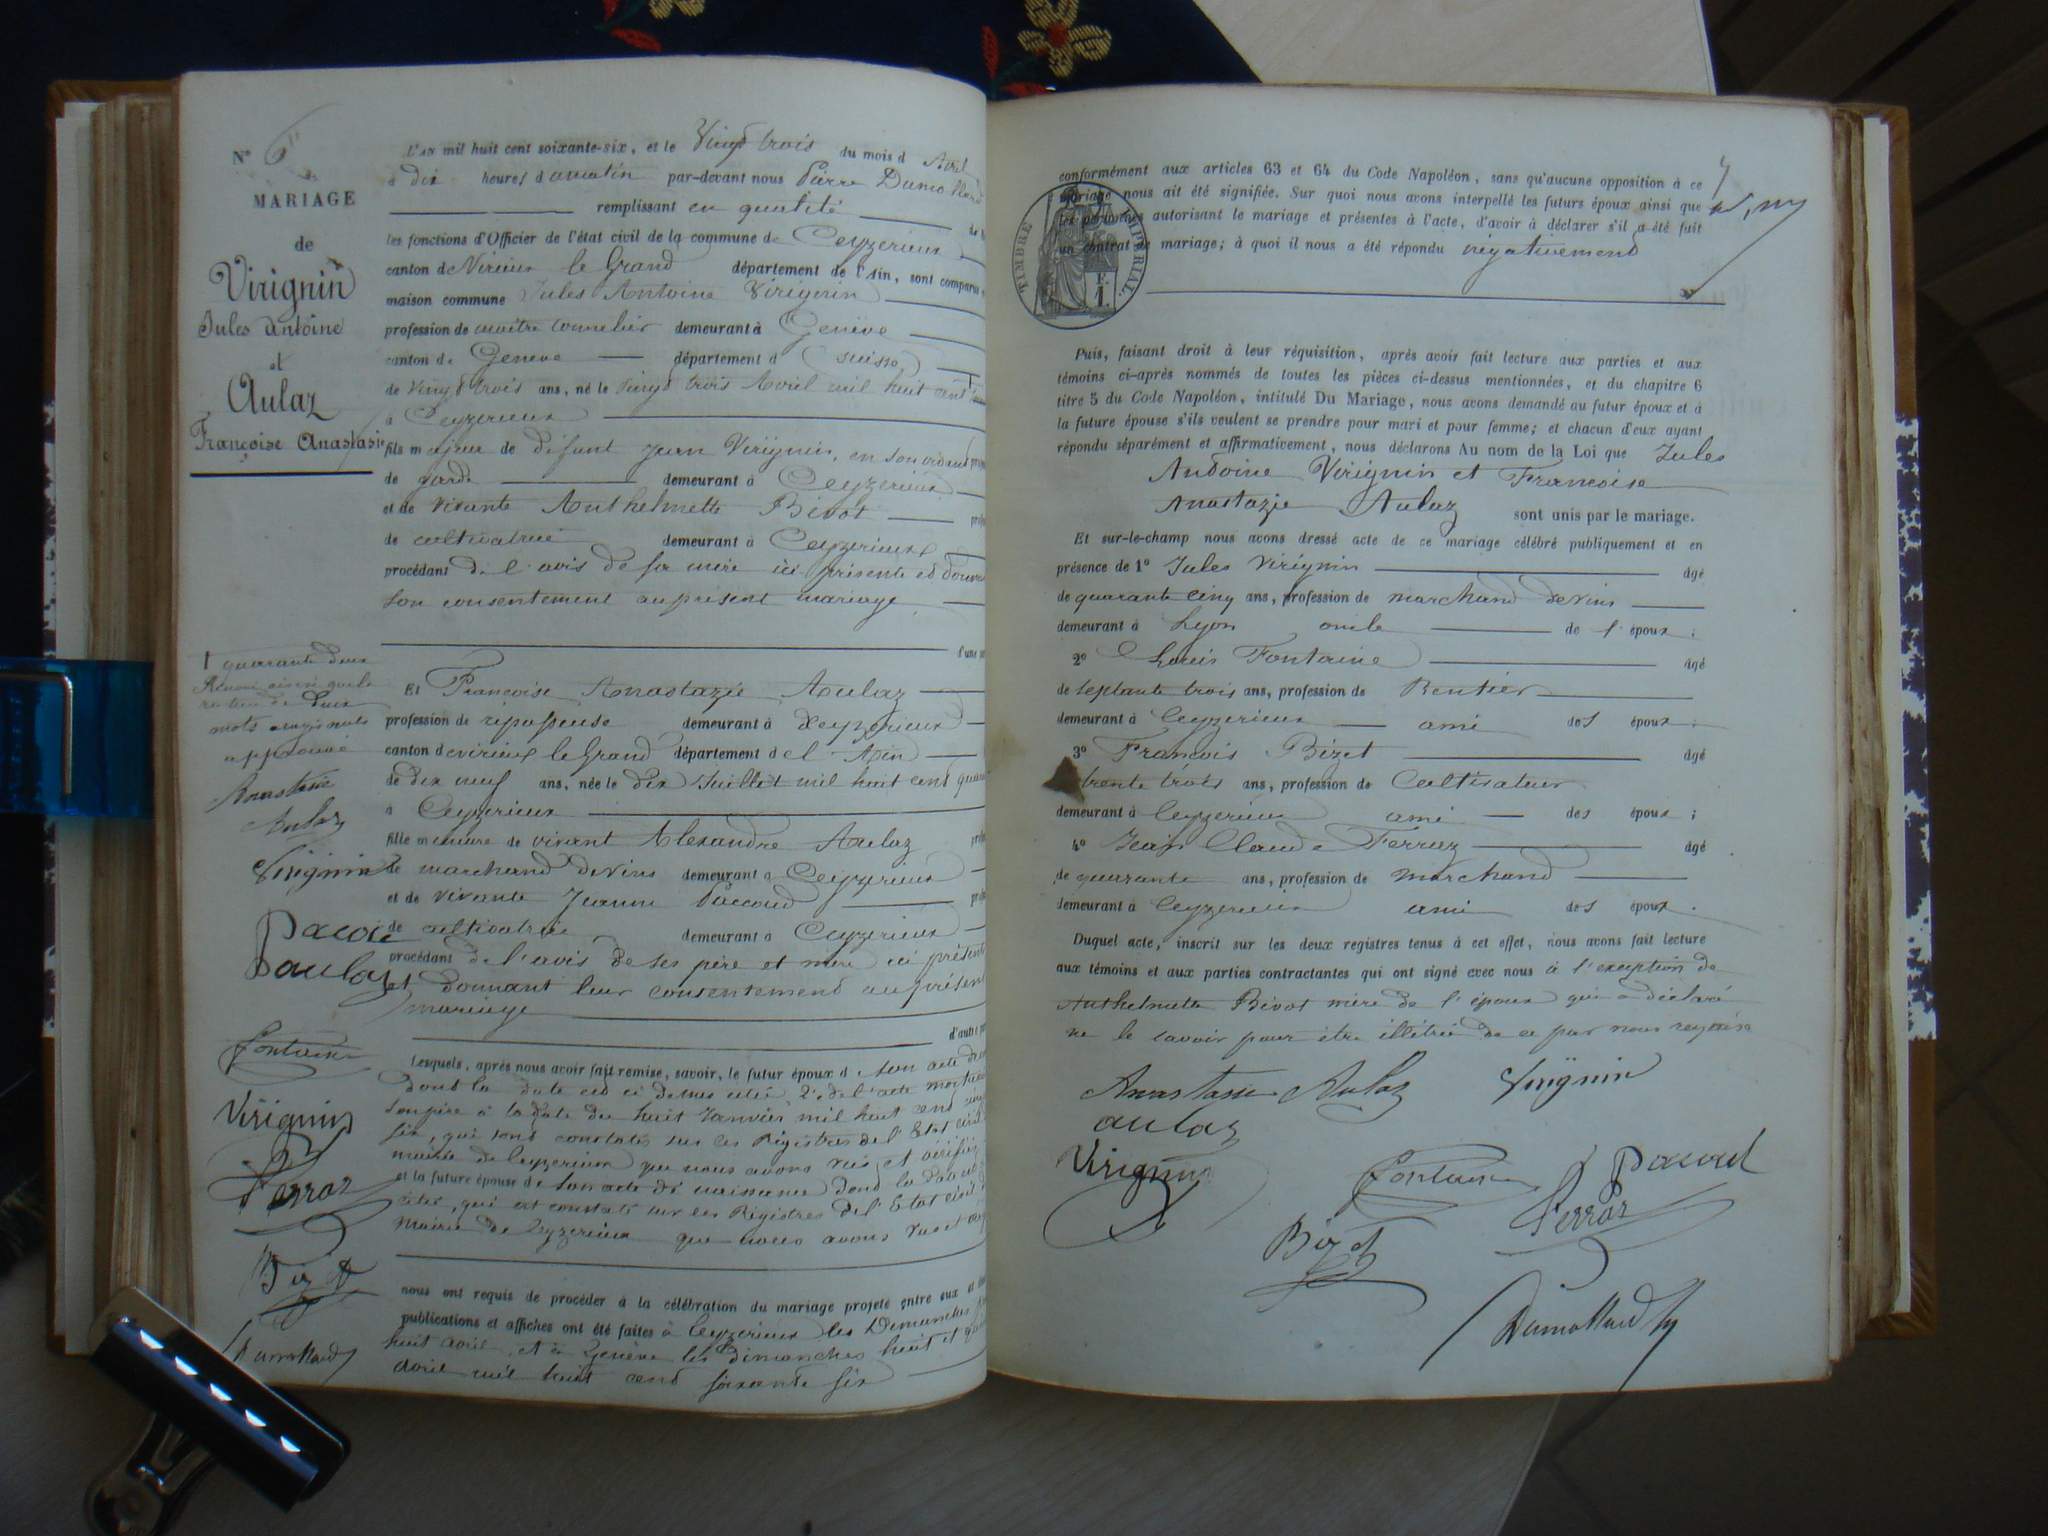 N° 6
MARIAGE
de
Virignin
Jules Antoine
et
Aulaz
Françoise Anastasie
L'AN mil huit cent soixante-six, et le Vingt trois du mois d Avril
à dix heures d u matin par-devant nous Pierre Dumollard
remplissant en qualité
les fonctions d'Officier de l'état civil de la commune de Ceyzerieux
canton de Virieux le Grand département de l'Ain, sont comparus
maison commune Jules Antoine Virignin
profession de maître tonnelier demeurant à Genève
canton de Geneve département d (suisse)
de vingt trois ans, né le vingt trois Avril mil huit cent
à Ceyzerieux
fils majeur de défunt Jean Virignin, en son vivant
de garde demeurant à Ceyzerieux
et de vivante Anthelmette Bévot
de cultivatrice demeurant à Ceyzerieux
procédant de l'avis de sa mère ici présente et donnant
son consentement au présent mariage
d'une
† quarante deux
deux
mots
approuvé
Anastasie
Aulaz
Virignin
Pacou
aulaz
Fontaine
Virignin
Ferraz
Bizet
Dumollard
Et Francoise Anastazie Aulaz
profession de repasseuse demeurant à Ceyzerieux
canton de virieux le Grand département de l'Ain
de dix neuf ans, née le dix Juillet mil huit cent
à Ceyzerieux
fille mineure de vivant Alexandre Aulaz
de marchand de vins demeurant à Ceyzerieux
et de vivante Jeanne Paccoud
de cultivatrice demeurant à Ceyzerieux
procédant de l'avis de ses père et mère ici présents
et donnant leur consentement au présent
mariage
d'autre
Lesquels, après nous avoir fait remise, savoir, le futur époux d son acte de
dont la date est ci dessus citée 2° de l'acte mortuaire
son père à la date du huit Janvier mil huit cent
six, qui sont constatés sur les Régistres de l'Etat civil
mairie de Ceyzerieux que nous avons vus et vérifiés
et la future épouse de son acte de naissance dont la date est
citée, qui est constaté sur les Régistres de l'Etat civil
mairie de Ceyzerieux que nous avons vus et
nous ont requis de procéder à la célébration du mariage projeté entre eux et
publications et affiches ont été faites à Ceyzerieux les Dimanches
huit avril, et à Genève les dimanches huit et
avril mil huit cent soixante six
conformément aux articles 63 et 64 du Code Napoléon, sans qu'aucune opposition à ce
mariage nous ait été signifiée. Sur quoi nous avons interpellé les futurs époux ainsi que
les personnes autorisant le mariage et présentes à l'acte, d'avoir à déclarer s'il a été fait
un contrat de mariage; à quoi il nous a été répondu négativement
TIMBRE IMPÉRIAL
1 F.
Puis, faisant droit à leur réquisition, après avoir fait lecture aux parties et aux
témoins ci-après nommés de toutes les pièces ci-dessus mentionnées, et du chapitre 6
titre 5 du Code Napoléon, intitulé Du Mariage, nous avons demandé au futur époux et à
la future épouse s'ils veulent se prendre pour mari et pour femme; et chacun d'eux ayant
répondu séparément et affirmativement, nous déclarons Au nom de la Loi que Jules
Antoine Virignin et Francoise
Anastazie Aulaz sont unis par le mariage.
Et sur-le-champ nous avons dressé acte de ce mariage célébré publiquement et en
présence de 1° Jules Virignin âgé
de quarante cinq ans, profession de marchand de vins
demeurant à Lyon oncle de l'époux;
2° Louis Fontaine âgé
de septante trois ans, profession de Rentier
demeurant à Ceyzerieux ami des époux;
3° François Bizet âgé
trente trois ans, profession de Cultivateur
demeurant à Ceyzerieux ami des époux;
4° Jean Claude Ferraz âgé
de quarante ans, profession de marchand
demeurant à Ceyzerieux ami des époux.
Duquel acte, inscrit sur les deux registres tenus à cet effet, nous avons fait lecture
aux témoins et aux parties contractantes qui ont signé avec nous à l'exception de
Anthelmette Bévot mère de l'époux qui a déclaré
ne le savoir pour être illétrée de ce par nous requise
Anastasie Aulaz Virignin
aulaz
Virignin Fontaine Pacoud
Bizet Ferraz
Dumollard